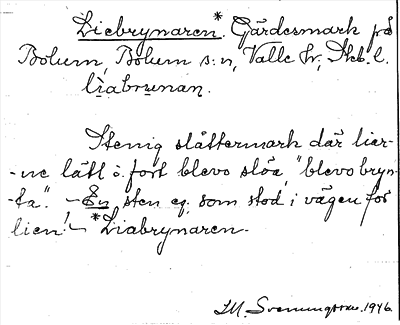 Liebrynaren.* Gärdesmark på
Bolum, Bolum s:n, Valle hr, Skb. l.
liabrynan.
Stenig slåttermark där liar-
-ne lätt o. fort blevo slöa, "blevo bryn-
-ta". – En sten eg. som stod i vägen för
lien! – *Liabrynaren.
M. Svenungsson. 1946.